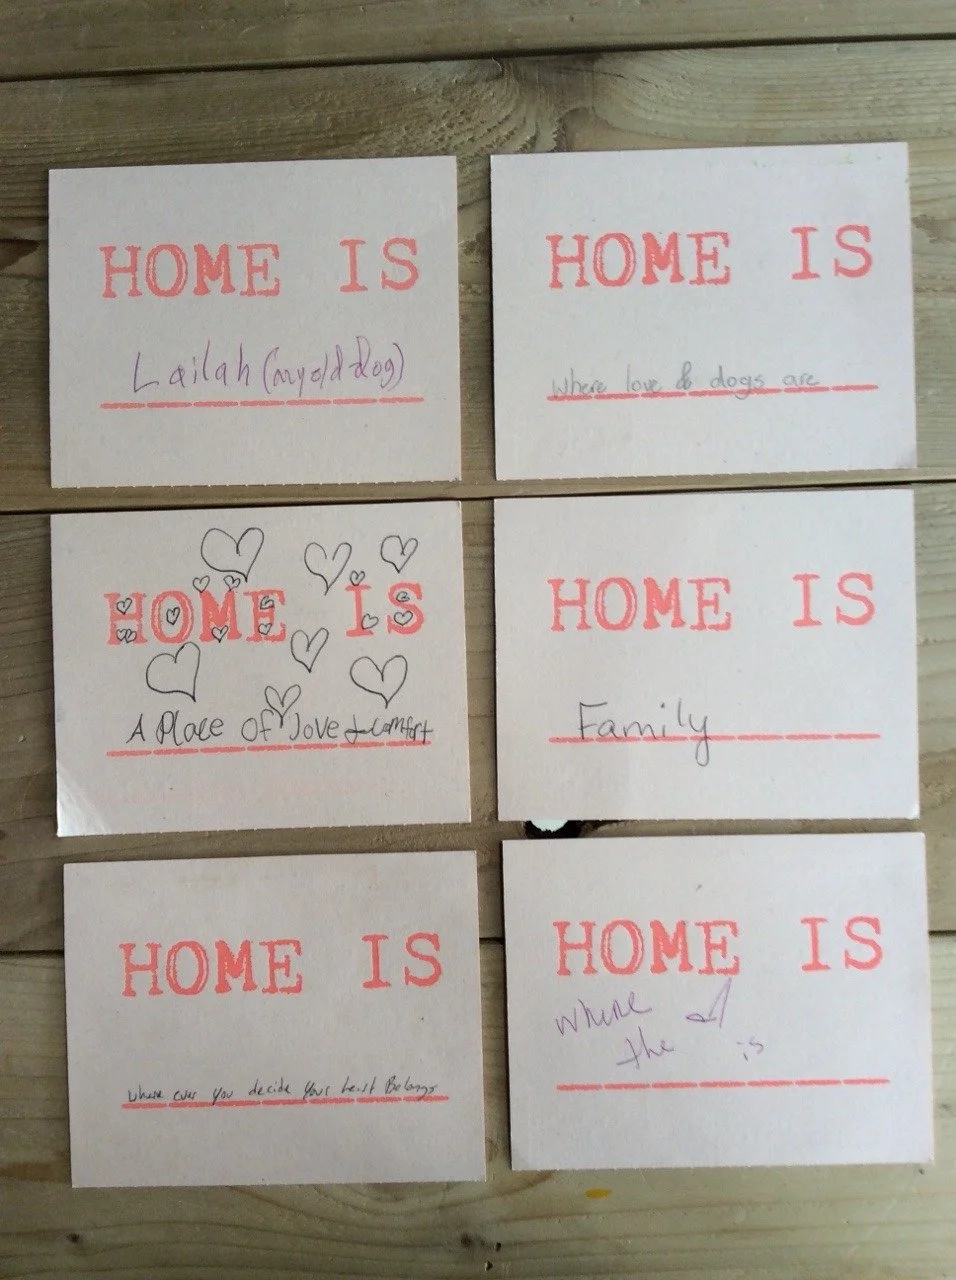 HOME IS
Lailah (my old dog)
HOME IS
where love & dogs are
HOME IS
A Place Of love & comfort
HOME IS
Family
HOME IS
where ever you decide your heart Belongs
HOME IS
where
the is